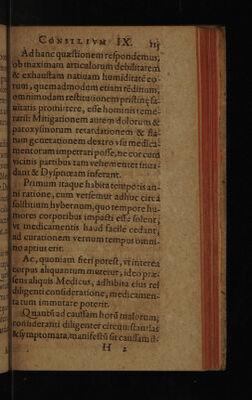 CONSILIVM IX. 115
Ad hanc quæstionem respondemus,
ob maximam articulorum debilitatem
& exhaustam natiuam humiditatē eo-
rum, quemadmodum etiam reditum,
omnimodam restitutionem pristinę sa-
nitatis promittere, esse hominis teme-
rarii: Mitigationem autem dolorum &
paroxysmorum retardationem & fla-
tuum generationem dextro vsu medica-
mentorum impetrari posse, ne eor cum
vicinis partibus tam vehementer incu-
dant & Dyspnœam inferant.
Primum itaque habita temporis an-
ni ratione, cum versemur adhuc circa
solstitium hybernum, quo tempore hu-
mores corporibus impacti esse solent,
vt medicamentis haud facile cedant,
ad curationem vernum tempus omni-
no aptius erit.
Ac, quoniam fieri potest, vt interea
corpus aliquantum mutetur, ideo præ-
sens aliquis Medicus, adhibita eius rei
diligenti consideratione, medicamen-
ta tum immutare poterit.
Quantū ad caussam horū malorum,
consideranti diligenter circūstantias
& symptomata, manifestū sit caussam il-
H 2